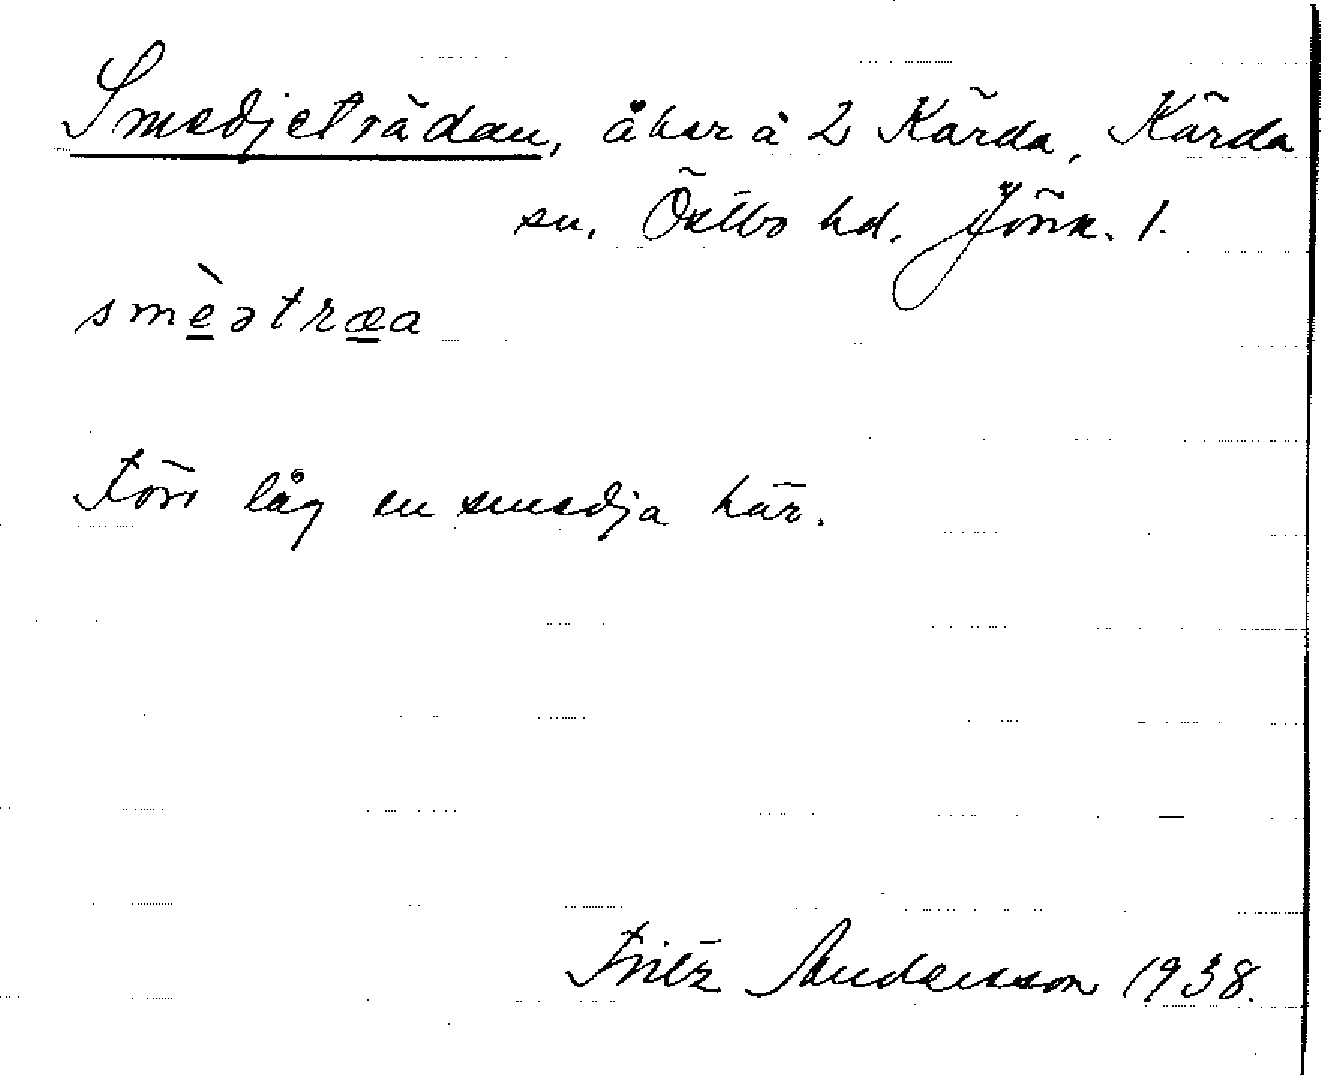 Smedjeträdan, åker å 2 Kärda, Kärda
sn. Östbo hd. Jönk. l.
smèətræa
Förr låg en smedja här.
Fritz Andersson 1938.